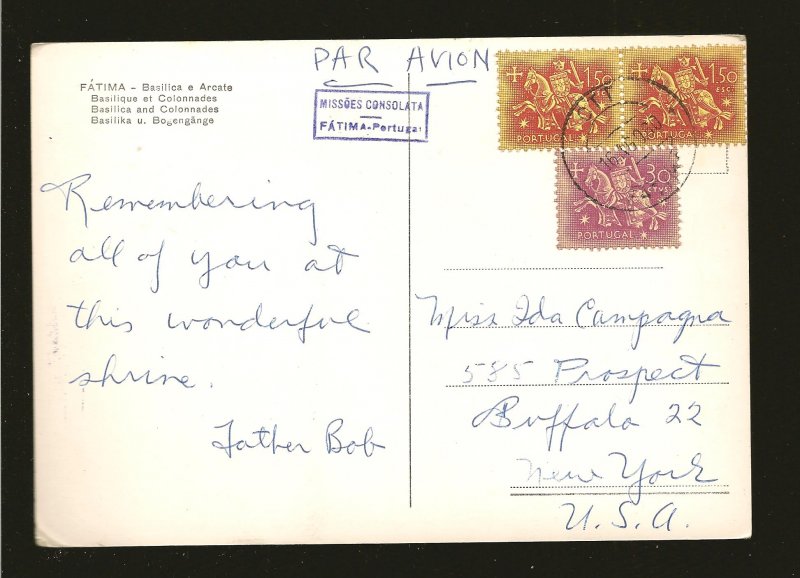 PAR AVION
FÁTIMA – Basilica e Arcate
Basilique et Colonnades
Basilica and Colonnades
Basilika u. Bogengänge
MISSÕES CONSOLATA
FÁTIMA-Portugal
1$50
ESC.
PORTUGAL
1$50
ESC.
PORTUGAL
CTT
$30
CTVS
PORTUGAL
Remembering
all of you at
this wonderful
shrine.
Father Bob
Miss Ida Campagna
585 Prospect
Buffalo 22
New York
U.S.A.